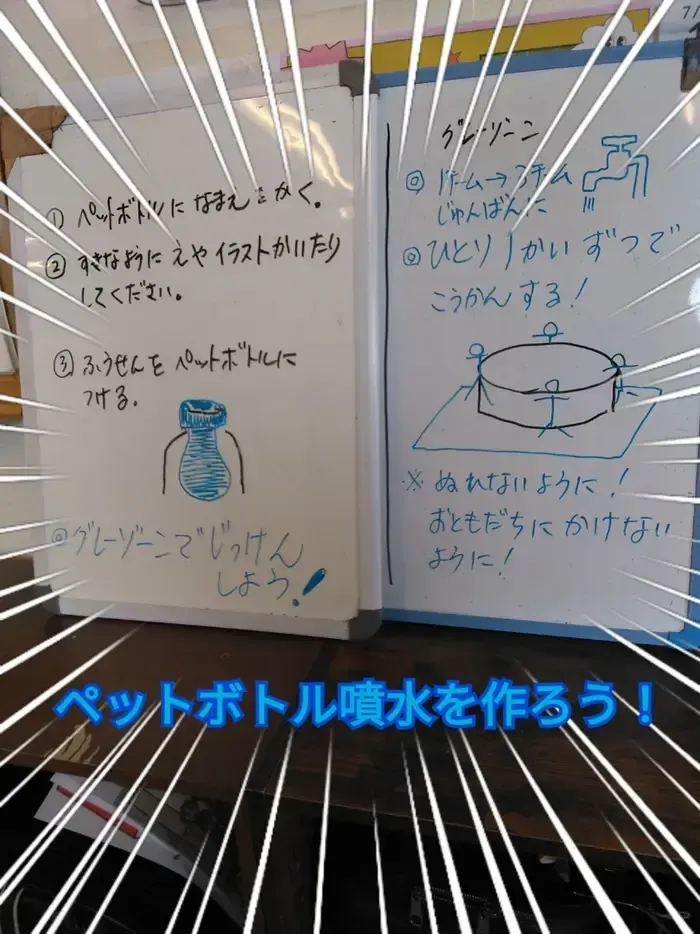 ① ペットボトルになまえをかく。
② すきなように えや イラストかいたり
してください。
③ ふうせんを ペットボトルに
つける。
◎グレーゾーンでじっけん
しよう!
グレーゾーン
◎ 1チーム→3チーム
じゅんばんに
◎ ひとり 1かい ずつで
こうかん する!
※ ぬれないように!
おともだちに かけない
ように!
ペットボトル噴水を作ろう!
7/